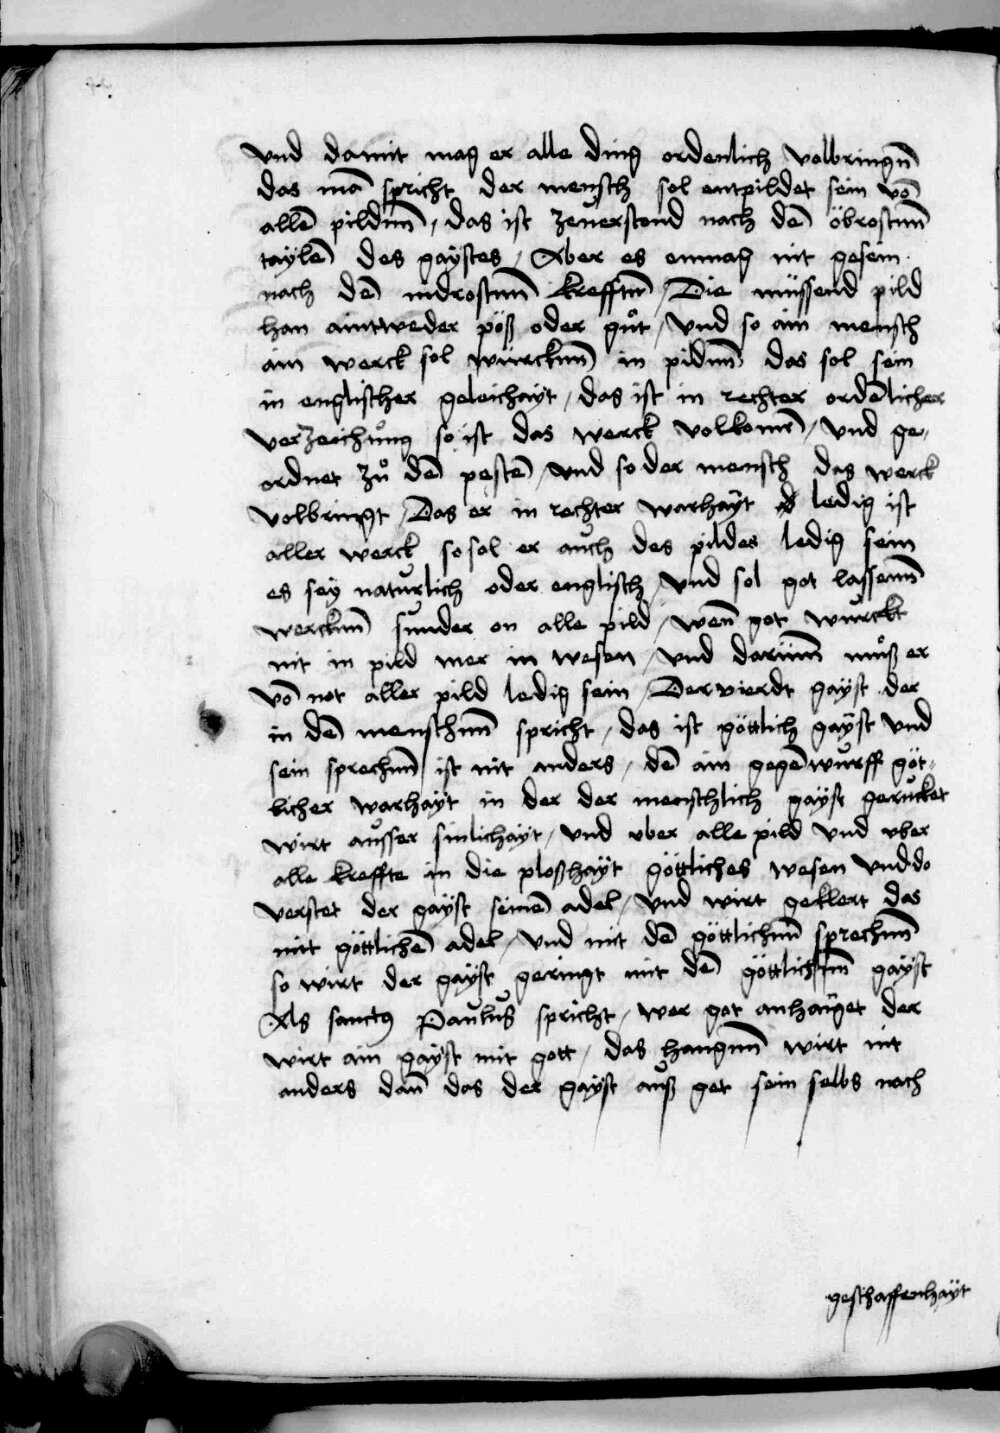 vnd damit mag er alle ding ordenlich volbringn̄
das mā spricht der mensch sol entpildet sein vō
allē pildnn̄ / das ist zeuerstond nach dē öbrostnn̄
taÿlē des gaÿstes / Aber es enmag nit gesein
nach dē nidrostnn̄ krefftnn̄ / Die müssend pild
han aintweder pöß oder gůt / vnd so ain mensch
ain werck sol würcknn̄ in pildnn̄ das sol sein
in englischer geleichaÿt / das ist in rechter ordēlicher
verzeichůng so ist das werck volkomē / vnd ge-
ordnet zů dē pestē / vnd so der mensch das werck
volbringt / Das er in rechter warhaÿt ledig ist
aller werck so sol er auch des pildes ledig sein
es seÿ naturlich oder englisch / vnd sol got lassenn̄
wercknn̄ sunder on alle pild / wen̄ got wurckt
nit in pild mer in wesen / vnd darumm̄ můß er
vō not aller pild ledig sein / Der vierdt gaÿst der
in dē menschnn̄ spricht / das ist göttlich gaÿst vnd
sein sprechnn̄ ist nit anders / dē ain gegēwurff göt-
licher warhaÿt in der der menschlich gaÿst gerucket
wirt ausser sinlichaÿt / vnd vber alle pild vnd vber
alle kreffte in die ploßhaÿt göttliches wesen vnd do
verstet der gaÿst seinē adel / vnd wirt geklert das
mit göttlichē adel / vnd mit dē göttlichnn̄ sprechnn̄
so wirt der gaÿst geringt mit dē göttlichnn̄ gaÿst
Als sanctꝰ Paulus spricht / wer got anhanget der
wirt ain gaÿst mit gott / das hangnn̄ wirt nit
anders dan̄ das der gaÿst auß get sein selbs nach
geschaffenhaÿt